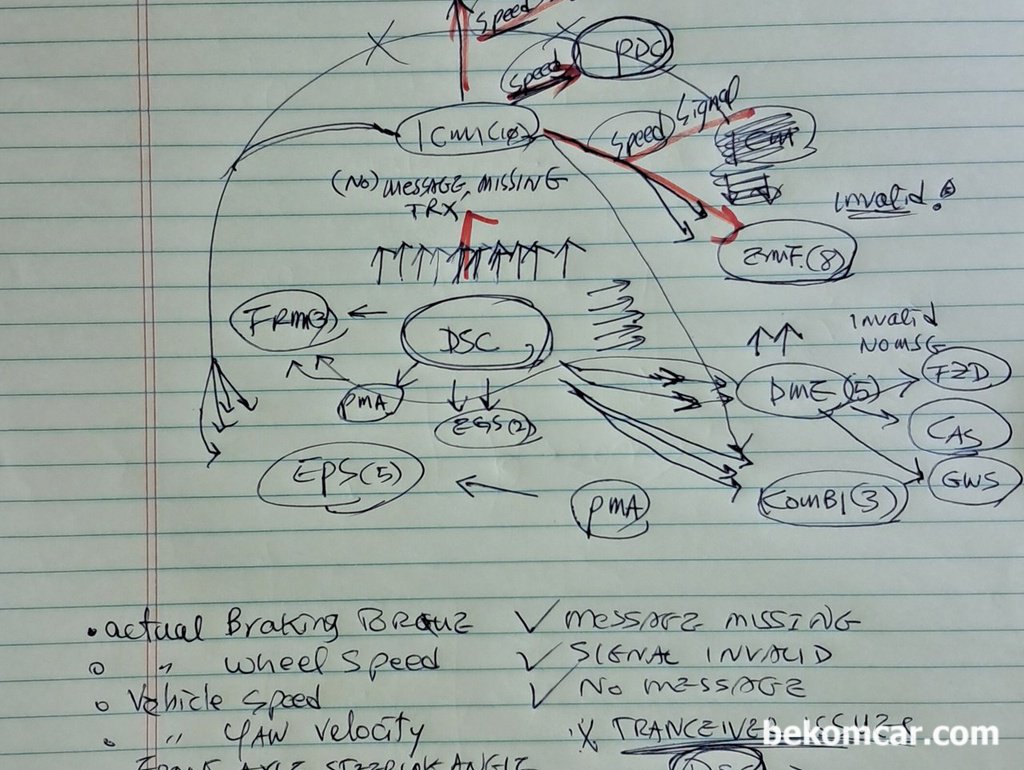 Speed
Speed
RDC
ICM(10)
Speed Signal
(NO) MESSAGE, MISSING
TRX
invalid!
ZMF.(8)
FRM(3)
DSC
Invalid
NO MSG
FZD
PMA
EGS(2)
DME (5)
CAS
EPS(5)
PMA
KOMBI(3)
GWS
• actual Braking TORQUE ✓ MESSAGE MISSING
o " wheel Speed ✓ SIGNAL INVALID
o Vehicle Speed ✓ NO MESSAGE
• " YAW velocity X TRANCEIVER ISSUES
FRONT AXLE STEERING ANGLE DSC
bekomcar.com